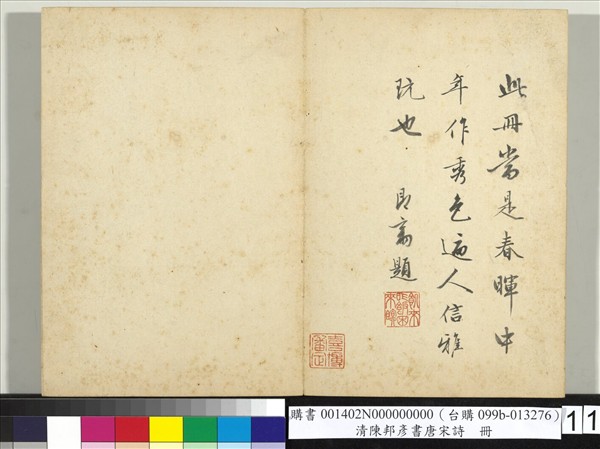 此冊當是春暉中
年作秀色逼人信雅
玩也
題
購書 001402N000000000（台購 099b-013276）
清陳邦彥書唐宋詩　冊
11